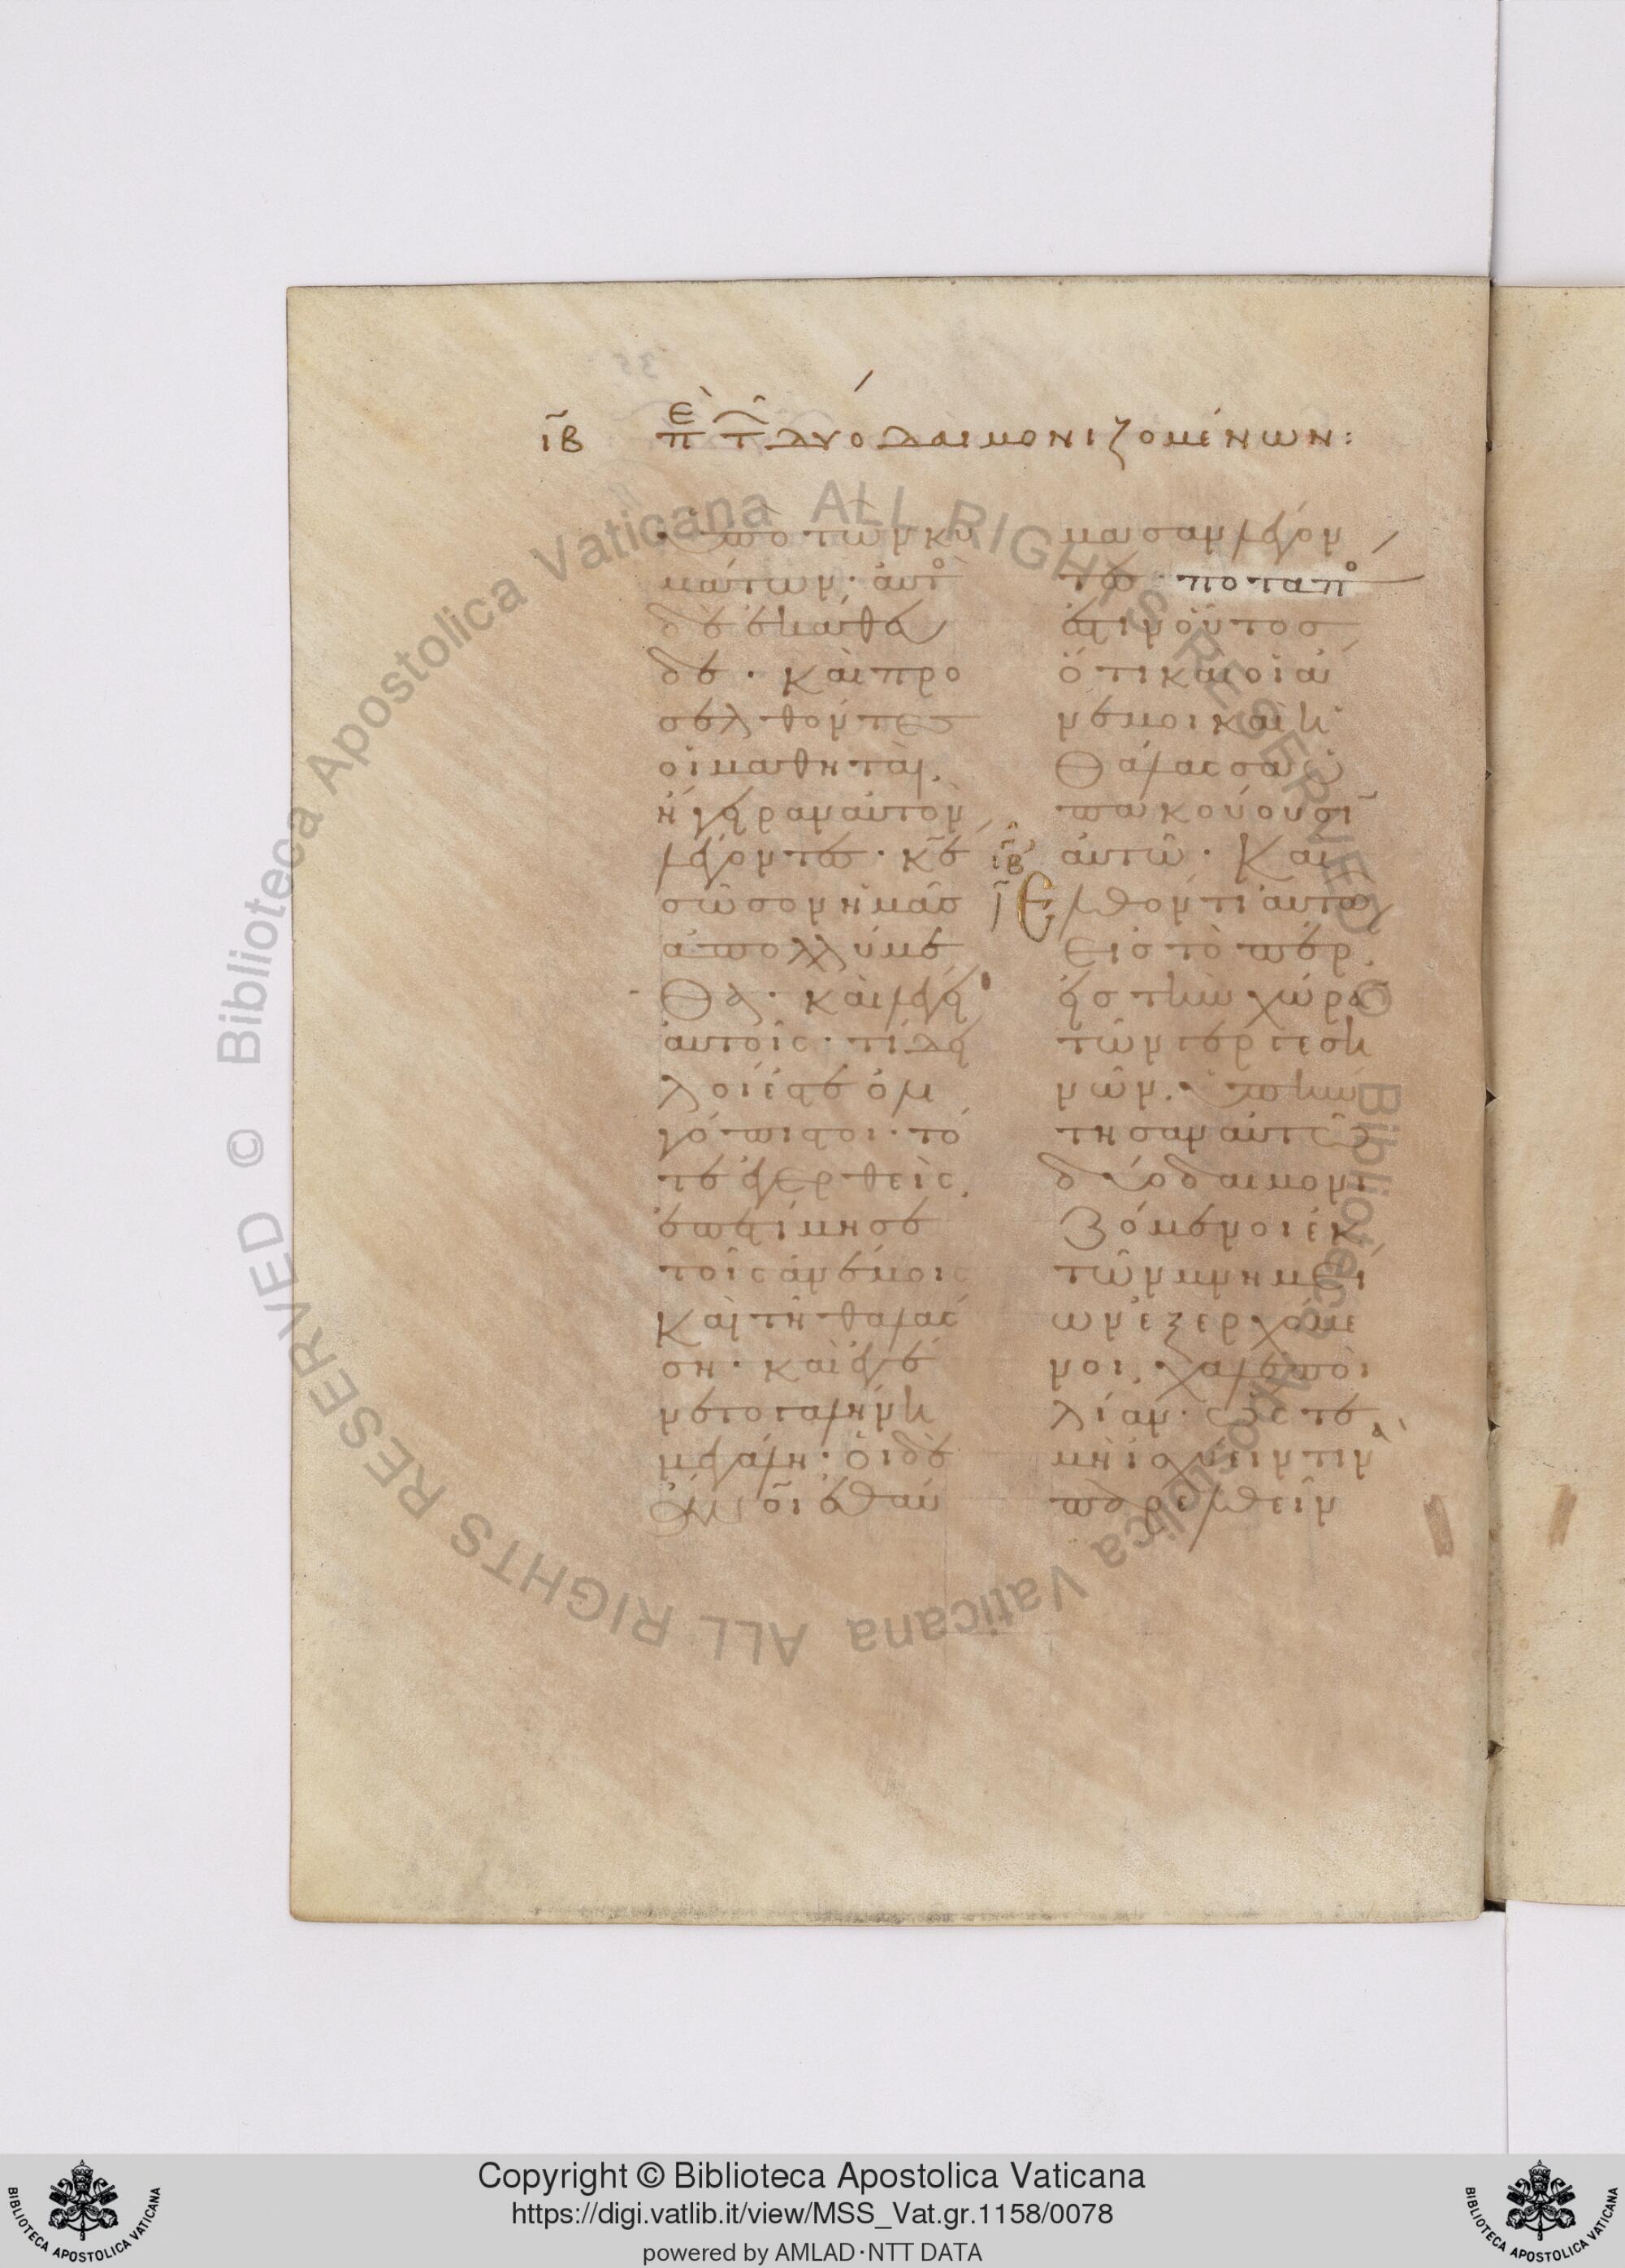 ιβ πε τ δύο δαιμονιζομένων:
ὑπὸ τῶν κυ
μάτων· αὐτὸ
δὲ ἐκάθευ
δε· καὶ προ
σελθόντες
οἱ μαθηταὶ
ἤγειραν αὐτὸν
λέγοντες· κε
σῶσον ἡμᾶς
ἀπολλύμε
θα· καὶ λέγει
αὐτοῖς· τί δει
λοί ἐστε ὀλι
γόπιστοι· τό
τε ἐγερθεὶς
ἐπετίμησε
τοῖς ἀνέμοις
καὶ τῇ θαλάσ
ση· καὶ ἐγέ
νετο γαλήνη
μεγάλη· οἱ δὲ
ἄνοι ἐθαύ
μασαν λέγον
τες· ποταπὸ
ἐστιν οὗτος
ὅτι καὶ οἱ ἄ
νεμοι καὶ ἡ
θάλασσα ὑ
πακούουσῖ
αὐτῶ· Και
ιβ
ἐλθόντι αὐτῶ
εἰς τὸ πέρα
εἰς τὴν χώρα
τῶν γεργεση
νῶν· ὑπήν
τησαν αὐτῶ
δύο δαιμονι
ζόμενοι ἐκ
τῶν μνημεί
ων ἐξερχόμε
νοι, χαλεποὶ
λίαν· ὥστε
μὴ ἰσχύειν τινὰ
παρελθεῖν
Copyright © Biblioteca Apostolica Vaticana
https://digi.vatlib.it/view/MSS_Vat.gr.1158/0078
powered by AMLAD·NTT DATA
Biblioteca Apostolica Vaticana ALL RIGHTS RESERVED ©
Biblioteca Apostolica Vaticana ALL RIGHTS RESERVED ©
BIBLIOTECA APOSTOLICA VATICANA
BIBLIOTECA APOSTOLICA VATICANA